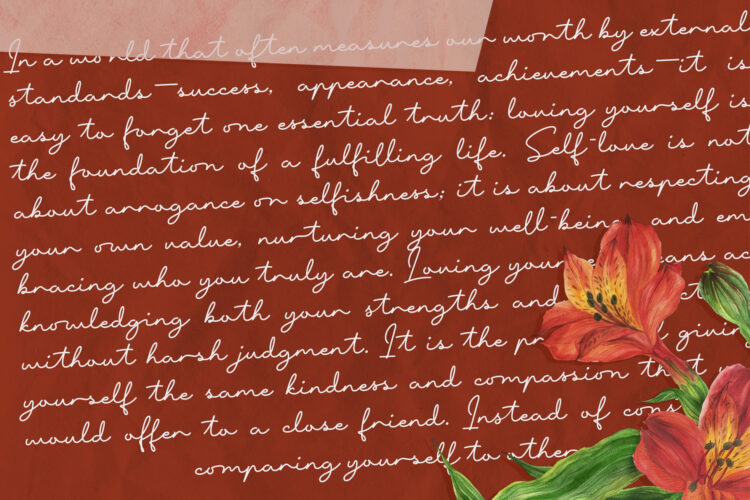 In a world that often measures our worth by external
standards—success, appearance, achievements—it is
easy to forget one essential truth: loving yourself is
the foundation of a fulfilling life. Self-love is not
about arrogance or selfishness; it is about respecting
your own value, nurturing your well-being, and em
bracing who you truly are. Loving means ac
knowledging both your strengths and
without harsh judgment. It is the
yourself the same kindness and compassion that
would offer to a close friend. Instead of
comparing yourself to